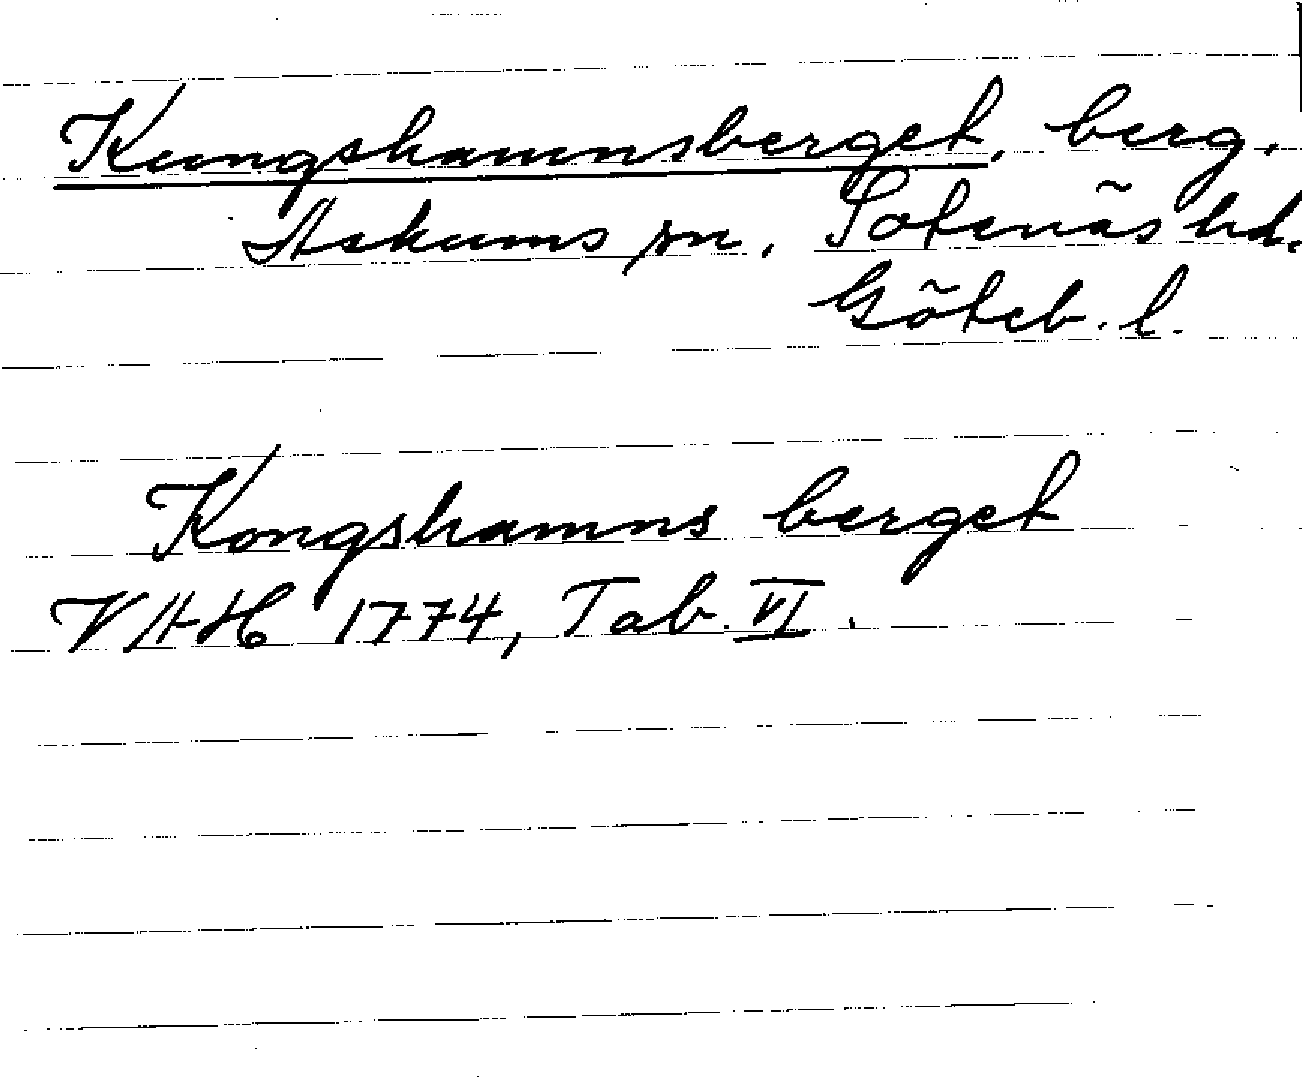 Kungshamnsberget, berg,
Askums sn, Sotenäs hd.
Göteb. l.
Kongshamns berget
VAH 1774, Tab. VI.